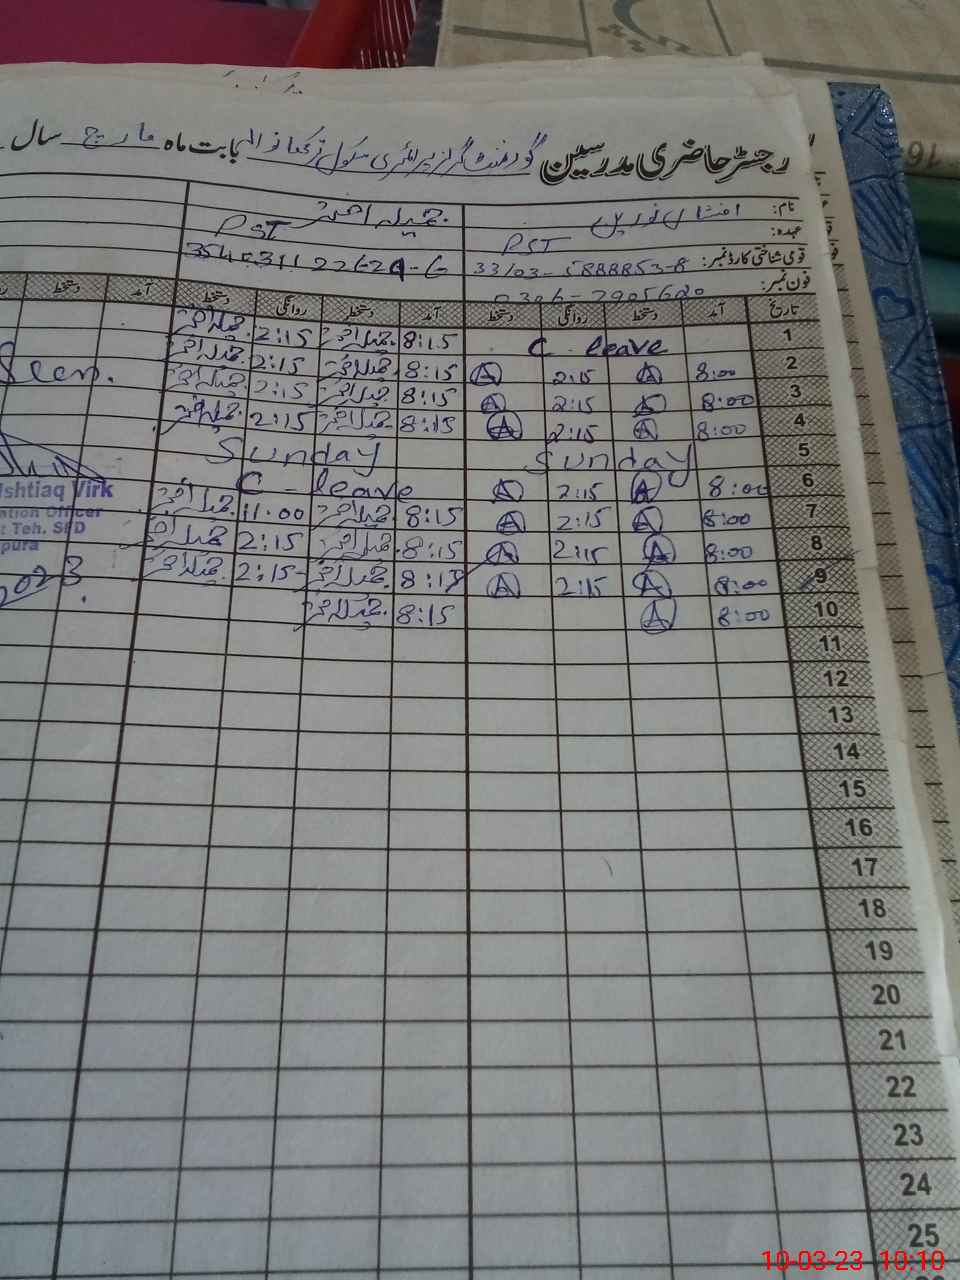 رجسٹر حاضری مدرسین گورنمنٹ گرلز پرائمری سکول بابت ماہ مارچ سال
نام: افشاں نورین جمیلہ اختر
عہدہ: PST PST
قومی شناختی کارڈ نمبر: 33103-5888853-8
فون نمبر: 0306-7905620
تاریخ آمد دستخط روانگی دستخط آمد دستخط روانگی دستخط آمد دستخط
1 C leave 8:15 جمیلہ اختر 2:15 جمیلہ اختر
2 8:00 A 2:15 A 8:15 جمیلہ اختر 2:15 جمیلہ اختر Seen.
3 8:00 A 2:15 A 8:15 جمیلہ اختر 2:15 جمیلہ اختر
4 8:00 A 2:15 A 8:15 جمیلہ اختر 2:15 جمیلہ اختر
5 Sunday Sunday
6 8:00 A 2:15 A C-leave
7 8:00 A 2:15 A 8:15 جمیلہ اختر 11:00 جمیلہ اختر
8 8:00 A 2:15 A 8:15 جمیلہ اختر 2:15 جمیلہ اختر
9 8:00 A 2:15 A 8:15 جمیلہ اختر 2:15 جمیلہ اختر
10 8:00 A 8:15 جمیلہ اختر
Ishtiaq Virk
Officer
Teh. SFD
pura
2023
11
12
13
14
15
16
17
18
19
20
21
22
23
24
25
10-03-23 10:10